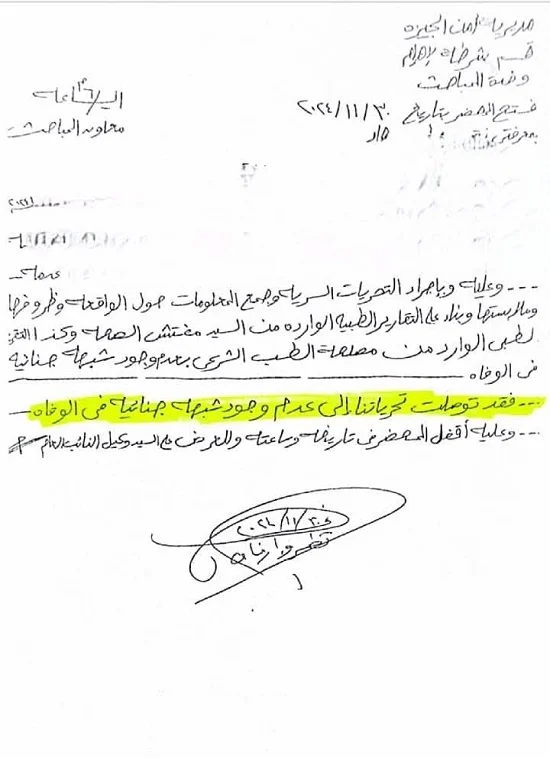 مديرية أمن الجيزه
قسم شرطة الاهرام
وحدة المباحث
الساعة
فتح المحضر بتاريخ ٢٠٢٤/١١/٣٠
معاون المباحث
--- وعليه وبإجراء التحريات السرية وجمع المعلومات حول الواقعة وظروفها
وملابستها وبناء على التقارير الطبية الوارده من السيد مفتش الصحه وكذا التقرير
الطبى الوارد من مصلحة الطب الشرعى بعدم وجود شبهه جنائية
فى الوفاه
--- فقد توصلت تحرياتنا إلى عدم وجود شبهه جنائية فى الوفاه
--- وعليه أقفل المحضر فى تاريخه وساعته وللعرض على السيد وكيل النائب العام
٢٠٢٤/١١/٣٠
نظر وارفاق